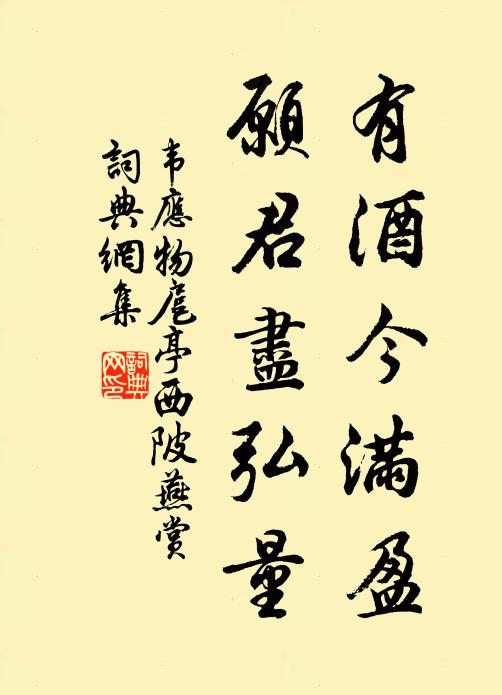 有酒今滿盈
願君盡弘量
韦應物扈亭西陂燕賞
詞典網集
詞典网印